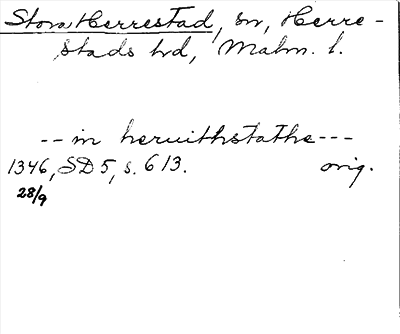 Stora Herrestad, sn, Herre-
stads hd, Malm. l.
-- in heruithstathe ---
1346, SD 5, s. 613. orig.
28/9